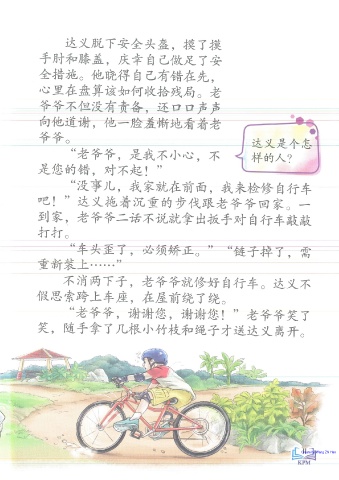 达义脱下安全头盔，摸了摸
手肘和膝盖，庆幸自己做足了安
全措施。他晓得自己有错在先，
心里在盘算该如何收拾残局。老
爷爷不但没有责备，还口口声声
向他道谢，他一脸羞惭地看着老
爷爷。
达义是个怎
样的人？
“老爷爷，是我不小心，不
是您的错，对不起！”
“没事儿，我家就在前面，我来检修自行车
吧！”达义拖着沉重的步伐跟老爷爷回家。一
到家，老爷爷二话不说就拿出扳手对自行车敲敲
打打。
“车头歪了，必须矫正。”“链子掉了，需
重新装上……”
不消两下子，老爷爷就修好自行车。达义不
假思索跨上车座，在屋前绕了绕。
“老爷爷，谢谢您，谢谢您！”老爷爷笑了
笑，随手拿了几根小竹枝和绳子才送达义离开。
KPM